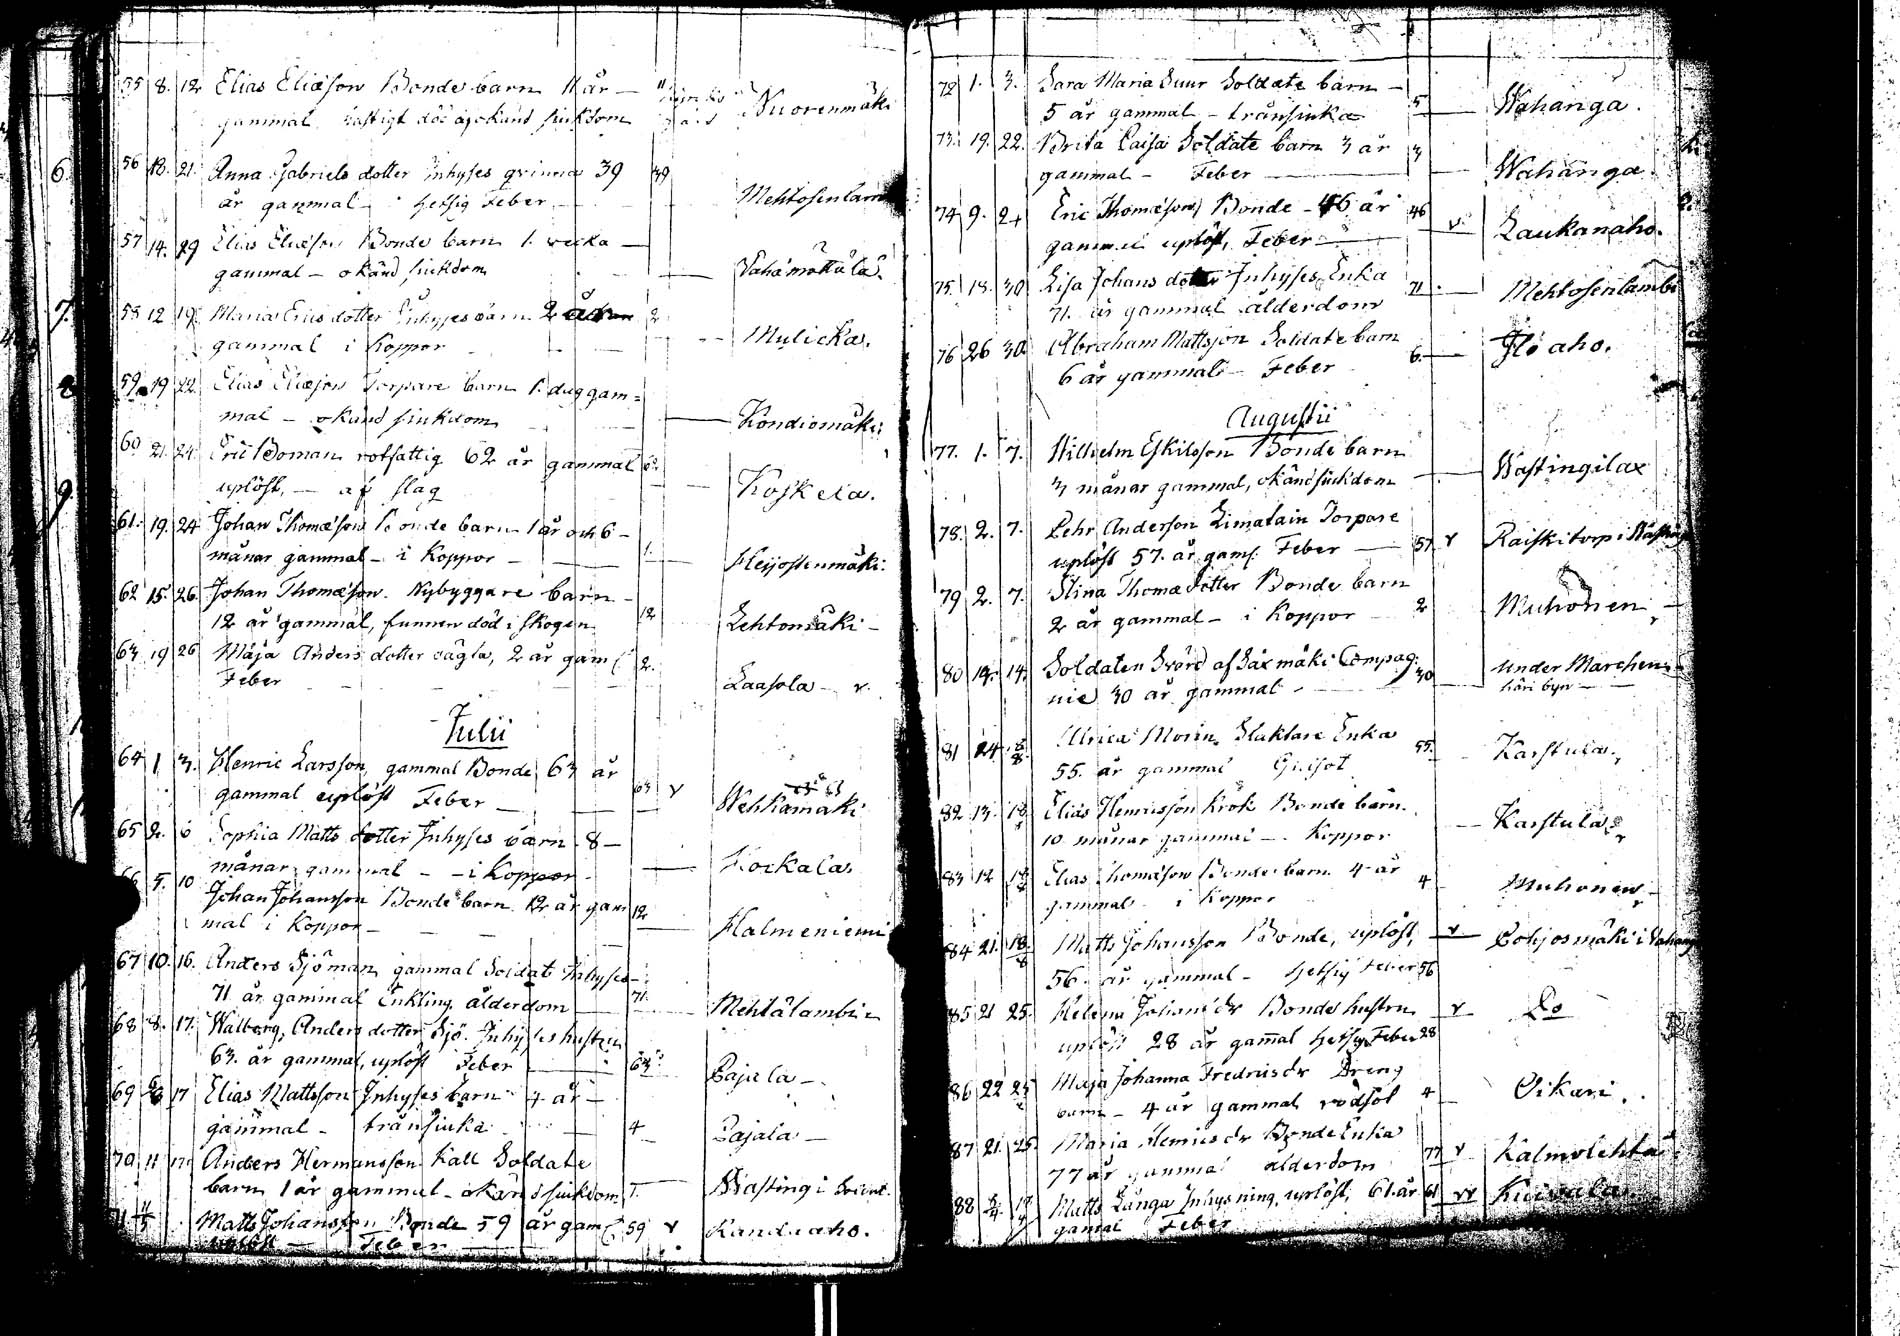 55 8. 12 Elias Eliæson Bonde barn 11 år — 11 Nuorenmäki
gammal hastigt död af okänd siukdom
56 18. 21. Anna Gabriels dotter Inhyses qvinna 39 39
år gammal i hetsig Feber Mehtosenlam
57 14. 29 Elias Eliæson Bonde barn 1. vecka —
gammal — okänd siukdom
58 12 19. Maria Erics dotter Inhyses barn 2 år 2
gammal i Koppor Mulicka.
59. 19 22 Elias Eliæson Torpare barn 1. dag gam=
mal — okänd siukdom Kondiomäki
60 21. 24 Eric Boman rotfattig 62 år gammal 62
uplöst, — af slag Koskela.
61. 19. 24 Johan Thomæson Bonde barn 1 år och 6 —
månar gammal — i Koppor — 1. Heijostenmäki.
62 15. 26. Johan Thomæson. Nybyggare barn —
12 år gammal, funnen död i skogen 12 Lehtomäki —
63 19 26 Maja Anders dotter 2 år gaml 2.
Feber Laasola — v.
Julii
64 1 3. Henric Larsson, gammal Bonde 63 år
gammal uplöst Feber — 63 v Wehkamäki
65 2. 6 Sophia Matts dotter Inhyses barn 8 —
månar gammal — i Koppor Kockala
66 5. 10 Johan Johansson Bonde barn 12 år gam 12
mal i Koppor — Halmeniemi
67 10. 16. Anders Sjöman gammal Soldat Inhyses —
71 år gammal Enkling, ålderdom 71. Mehtälambi
68 8. 17. Walborg Anders dotter Sjö. Inhyses hustru
63. år gammal, uplöst Feber 63 Pajala —
69 17 Elias Mattsson Inhyses barn 4 år —
gammal — trånsiuka 4 Pajala —
70 11 17. Anders Hermansson Kall Soldate
barn 1 år gammal — okänd siukdom 1. Wastingi
71 Matts Johansson Bonde 59 år gaml 59 v Kanduaho.
uplöst — Feber —
72 1. 3. Sara Maria Suur Soldate barn —
5 år gammal — trånsiuka 5 Wahanga.
73. 19. 22. Brita Caisa Soldate barn 3 år 3
gammal — Feber — Wahanga.
74 9. 24 Eric Thomæson Bonde — 46 år 46 v
gammal uplöst, Feber — Laukanaho.
75. 18. 30 Lisa Johans dotter Inhyses Enka
71. år gammal ålderdom 71 Mehtosenlambi
76 26 30. Abraham Mattsson Soldate barn
6 år gammal — Feber 6. Ilo aho.
Augustii
77. 1. 7. Wilhelm Eskilsson Bonde barn
3 månar gammal, okänd siukdom Wastingilax
78. 2. 7. Pehr Anderson Limatain Torpare
uplöst 57. år gaml. Feber — 57 v Raiskitorp i
79 2. 7. Stina Thomæ dotter Bonde barn
2 år gammal — i Koppor 2 Muhonen —
80 14. 14. Soldaten Svärd af Saxmäki Compag
nie 30 år gammal — 30 under Marchen
häri byn —
81 24. Ulrica Morin. Slaktare Enka
55. år gammal 55. Karstula.
82 13. 18 Elias Henricsson Krök Bonde barn.
10 månar gammal — Koppor Karstula
83 12 18 Elias Thomæson Bonde barn 4 år 4
gammal i Koppor Muhonen —
84 21. 18/8 Matts Johansson Bonde, uplöst, v Pohjosmäki i Wahang
56. år gammal — hetsig Feber 56
85 21 25. Helena Johans dr Bonde hustru v Do
uplöst 28 år gammal hetsig Feber 28
86 22 25 Maja Johanna Fredricsdr Dreng
barn — 4 år gammal rödsot 4 Oikari.
87 21. 25. Maria Henricsdr Bonde Enka
77 år gammal ålderdom 77 v Kalmolehtä
88 Matts Långa Inhysning, uplöst, 61. år 61 vv Kuivala
gamal Feber